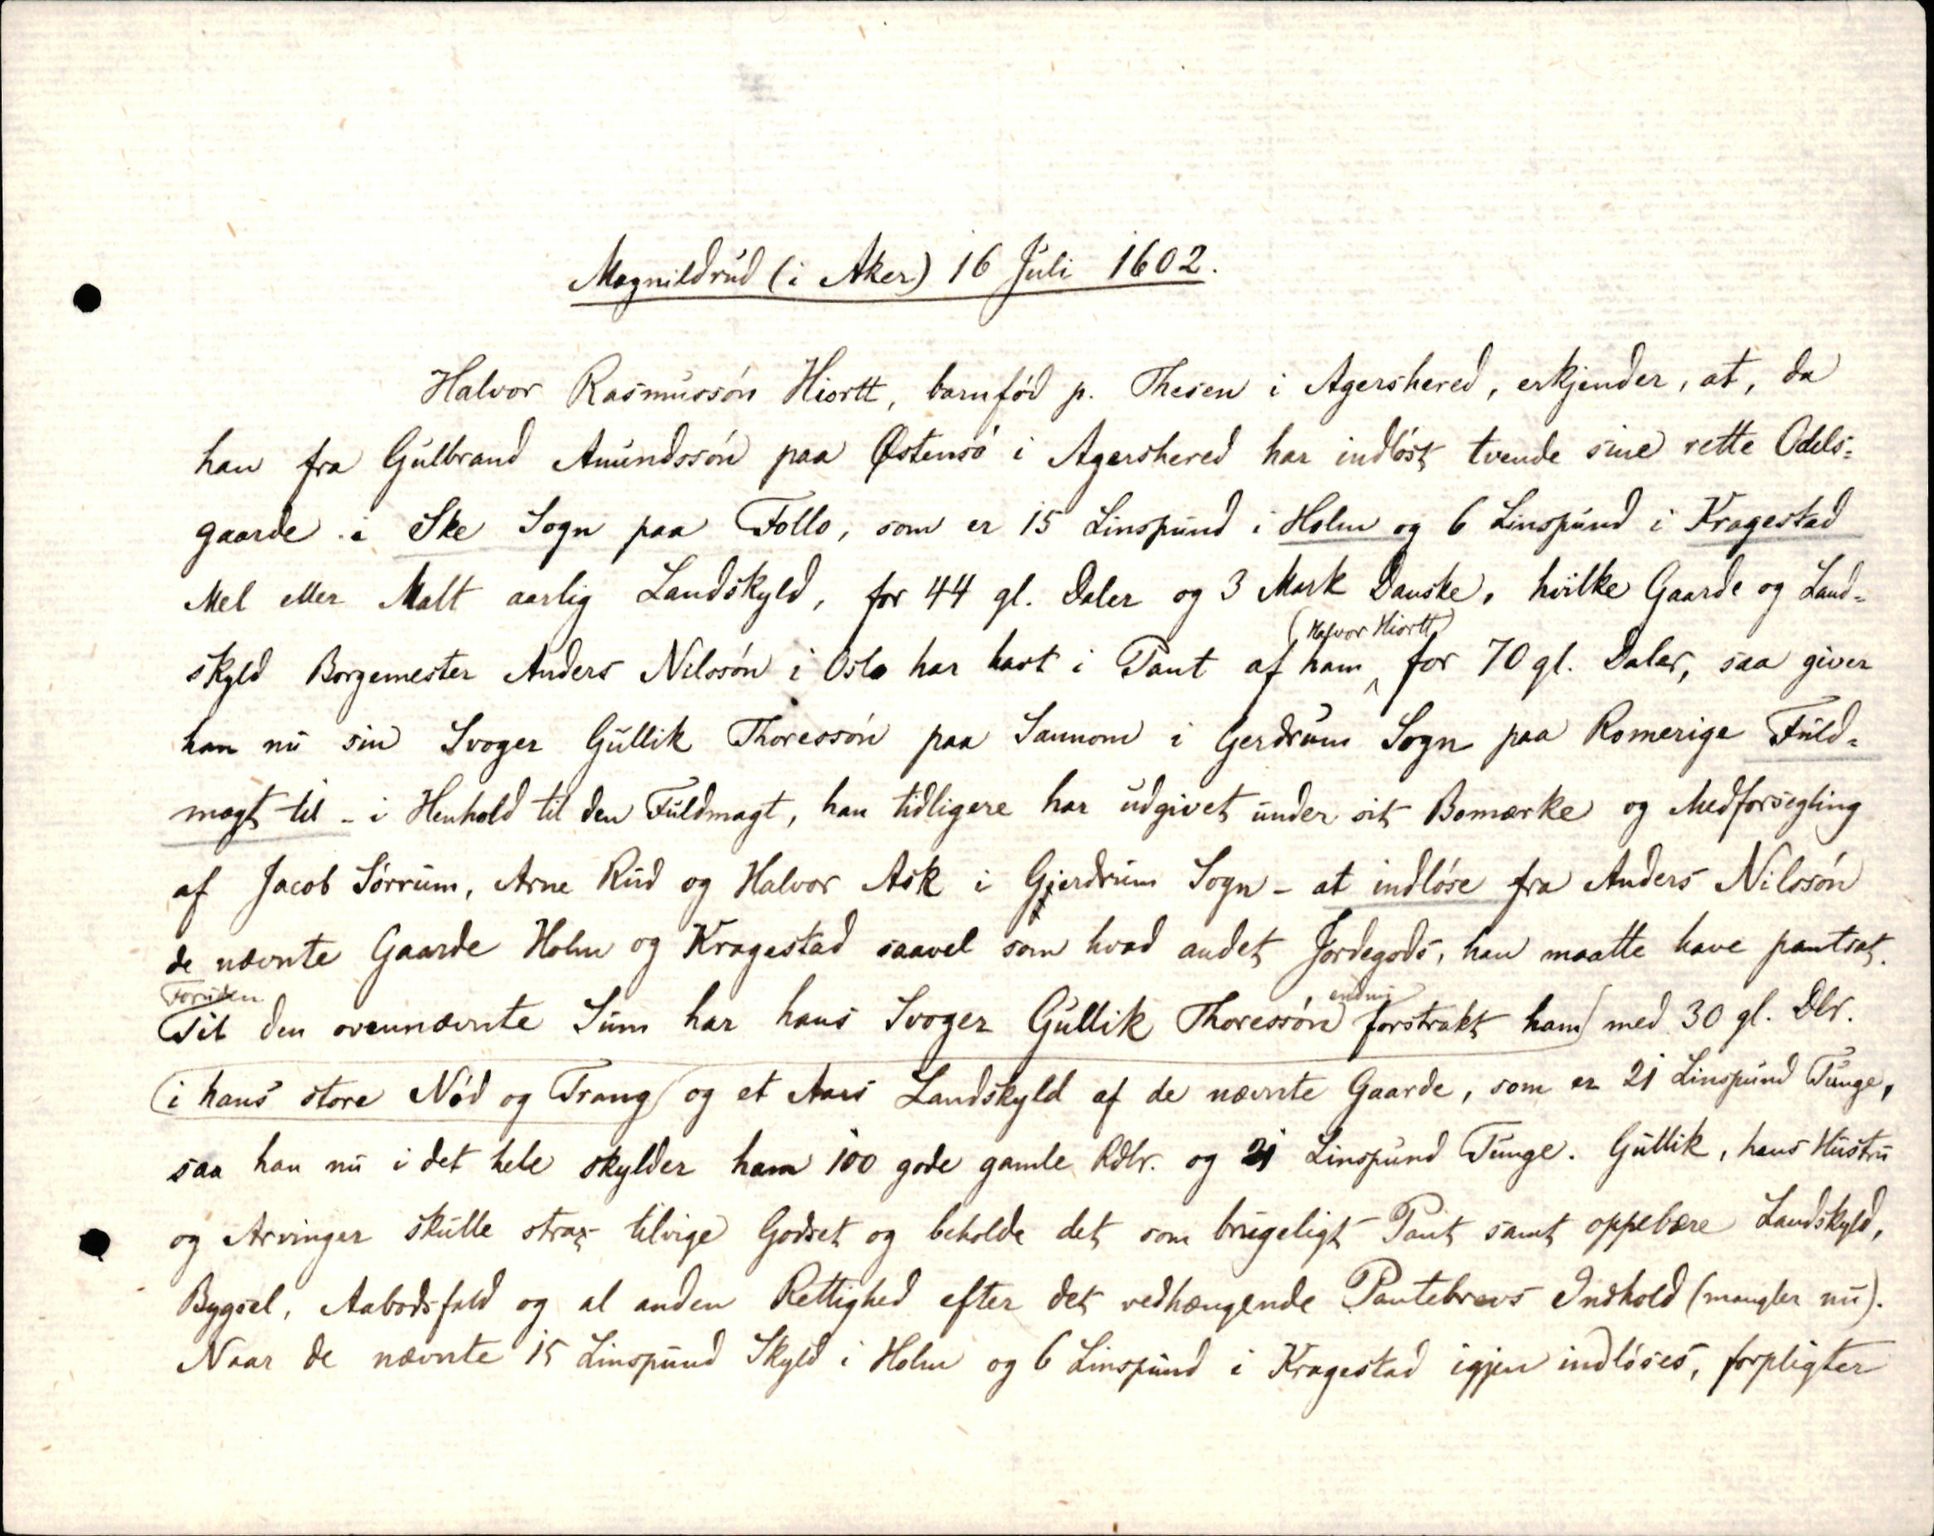 Magnildrud (i Aker) 16 Juli 1602.
Halvor Rasmussön Hiortt, barnfød p. Thesen i Agershered, erkjender, at, da
han fra Gulbrand Amundssön paa Østensø i Agershered har indløst tvende sine rette Odels=
gaarde i Ske Sogn paa Follo, som er 15 Linspund i Holm og 6 Linspund i Kragestad
Mel eller Malt aarlig Landskyld, for 44 gl. Daler og 3 Mark Danske, hvilke Gaarde og Land=
skyld Borgemester Anders Nilssön i Oslo har havt i Pant af ham (Halvor Hiortt) for 70 gl. Daler, saa giver
han nu sin Svoger Gullik Thoressön paa Sannom i Gerdrum Sogn paa Romerige Fuld=
magt til - i Henhold til den Fuldmagt, han tidligere har udgivet under sit Bomærke og Medforsegling
af Jacob Sørrum, Arne Rud og Halvor Ask i Gjerdrum Sogn - at indløse fra Anders Nilssön
de nævnte Gaarde Holm og Kragestad saavel som hvad andet Jordegods, han maatte have pantsat.
Foruden
Til den ovennævnte Sum har hans Svoger Gullik Thoressön endnu forstrakt ham med 30 gl. Dlr.
(i hans store Nød og Trang) og et Aars Landskyld af de nævnte Gaarde, som er 21 Linspund Tunge,
saa han nu i det hele skylder ham 100 gode gamle Rdlr. og 21 Linspund Tunge. Gullik, hans Hustru
og Arvinger skulle strax tilvige Godset og beholde det som brugeligt Pant samt oppebære Landskyld,
Bygsel, Aabodsfald og al anden Rettighed efter det vedhængende Pantebrevs Indhold (mangler nu).
Naar de nævnte 15 Linspund Skyld i Holm og 6 Linspund i Kragestad igjen indløses, forpligter